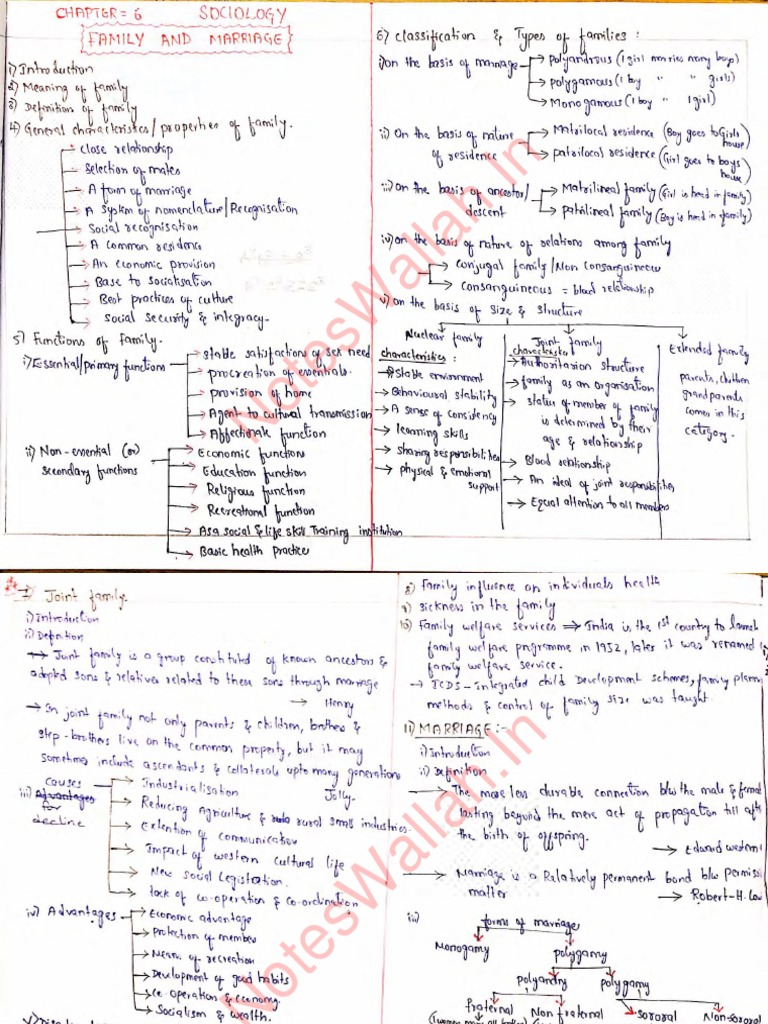 CHAPTER = 6 SOCIOLOGY
FAMILY AND MARRIAGE
1) Introduction
2) Meaning of family
3) Definition of family
4) General characteristics/properties of family.
close relationship
Selection of mates
A form of marriage
A system of nomenclature/Recognisation
Social recognisation
A common residence
An economic provision
Base to socialisation
Best practices of culture
social security & integracy.
5) Functions of family.
i) Essential/primary functions
stable satisfactions of sex need
procreation of essentials.
provision of home
Agent to cultural transmission
Affectionate function
ii) Non-essential (or)
secondary functions
Economic functions
Education function
Religious function
Recreational function
As a social & life skill Training institution
Basic health practice
6) Classification & Types of families :
i) on the basis of marriage
polyandrous (1 girl marries many boys)
polygamous (1 boy " " girls)
Monogamous (1 boy " 1 girl)
ii) On the basis of nature
of residence
Matrilocal residence (Boy goes to Girls house)
patrilocal residence (Girl goes to boys house)
iii) on the basis of ancestor/
descent
Matrilineal family (Girl is head in family)
patrilineal family (Boy is head in family)
iv) on the basis of nature of relations among family
conjugal family/Non consanguineous
consanguineous = blood relationship
v) on the basis of size & structure
Nuclear family
characteristics :
Stable environment
Behavioural stability
A sense of consistency
learning skills
sharing responsibilities
physical & emotional
support
Joint family
characteristics
Authoritarian structure
family as an organisation
status of member of family
is determined by their
age & relationship
Blood relationship
An ideal of joint responsibilities
Equal attention to all members
Extended family
parents, children
grandparents
comes in this
category.
7) Joint family.
i) Introduction
ii) Definition
Joint family is a group constituted of known ancestors &
adopted sons & relatives related to these sons through marriage
Henry
In joint family not only parents & children, brothers &
step-brothers live on the common property, but it may
sometime include ascendants & collaterals upto many generations
Jolly.
iii) Advantages causes
for
decline
Industrialisation
Reducing agriculture & rural small industries.
Extention of communication
Impact of western cultural life
New social legistration.
lack of co-operation & co-ordination
iv) Advantages
Economic advantage
Protection of member
Mean of recreation
Development of good habits
Co-operation & economy.
Socialism & wealth.
8) Family influence on individuals health
9) Sickness in the family
10) Family welfare services India is the 1st country to launch
family welfare programme in 1952, later it was renamed
family welfare service.
ICDS - Integrated child Development schemes, family planning
methods & control of family size was taught
11) MARRIAGE :-
i) Introduction
ii) Definition
The more less durable connection b/w the male & female
lasting beyond the mere act of propagation till after
the birth of offspring.
Edward
Marriage is a Relatively permanent bond b/w
matter
Robert-H.
iii) forms of marriage
Monogamy
polygamy
polyandry
polygamy
fraternal
Non fraternal
sororal
Non-sororal
NotesWallah.In
NotesWallah.In